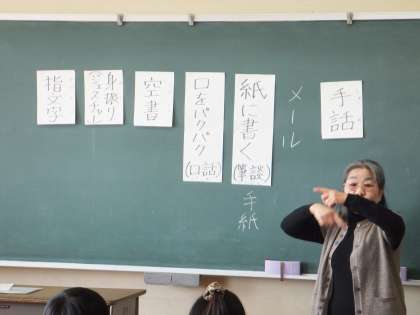 手話
メール
紙に書く(筆談)
手紙
口をパクパク(口話)
空書
身振り
(ジェスチャー)
指文字